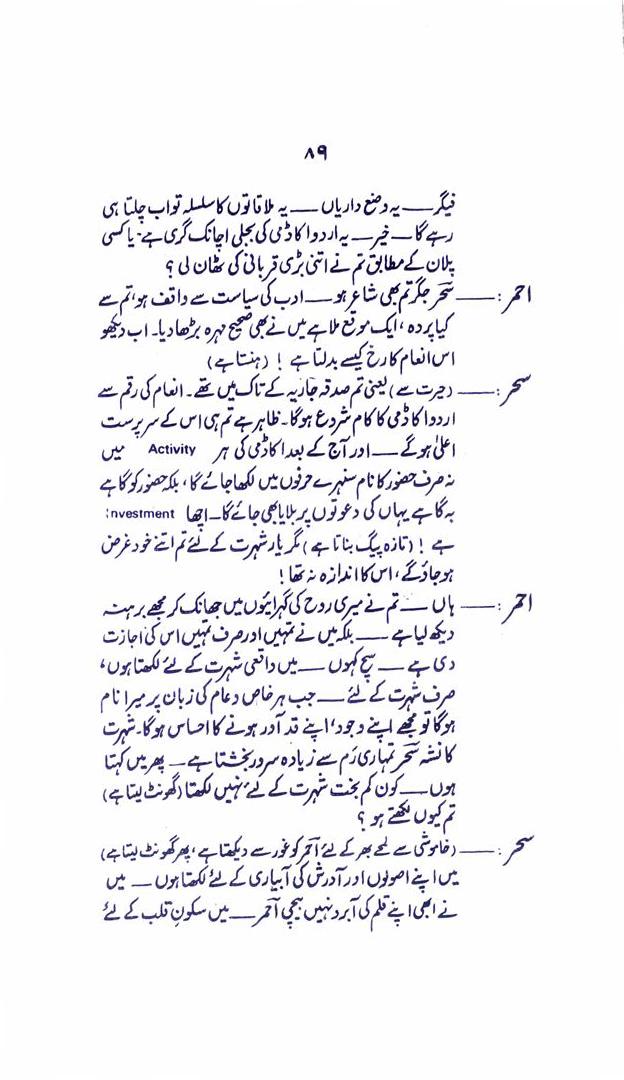 ۸۹
فیگر ـــ یہ وضع داریاں ـــ یہ ملاقاتوں کا سلسلہ تو اب چلتا ہی
رہے گا ـــ خیر ـــ یہ اردو اکاڈمی کی بجلی اچانک گری ہے۔ یا کسی
پلان کے مطابق تم نے اتنی بڑی قربانی کی ٹھان لی ؟
احمر : ـــ سحر جگر تم بھی شاعر ہو ـــ ادب کی سیاست سے واقف ہو، تم سے
کیا پردہ ، ایک موقع ملا ہے میں نے بھی صحیح مہرہ بڑھا دیا۔ اب دیکھو
اس انعام کا رخ کیسے بدلتا ہے ! (ہنستا ہے)
سحر : ـــ (حیرت سے) یعنی تم صدقہ جاریہ کے تاک میں تھے۔ انعام کی رقم سے
اردو اکاڈمی کا کام شروع ہوگا۔ ظاہر ہے تم ہی اس کے سرپرست
اعلیٰ ہوگے ـــ اور آج کے بعد اکاڈمی کی ہر Activity میں
نہ صرف حضور کا نام سنہرے حرفوں میں لکھا جائے گا، بلکہ حضور کو گاہے
بہ گاہے یہاں کی دعوتوں پر بلایا بھی جائے گا۔ اچھا Investment
ہے ! (تازہ پیگ بناتا ہے) مگر یار شہرت کے لئے تم اتنے خود غرض
ہو جاؤ گے، اس کا اندازہ نہ تھا !
احمر : ـــ ہاں ـــ تم نے میری روح کی گہرائیوں میں جھانک کر مجھے برہنہ
دیکھ لیا ہے ـــ بلکہ میں نے تمہیں اور صرف تمہیں اس کی اجازت
دی ہے ـــ سچ کہوں ـــ میں واقعی شہرت کے لئے لکھتا ہوں،
صرف شہرت کے لئے ـــ جب ہر خاص و عام کی زبان پر میرا نام
ہوگا تو مجھے اپنے وجود، اپنے قد آور ہونے کا احساس ہوگا۔ شہرت
کا نشہ سحر تمہاری رَم سے زیادہ سرور بخشتا ہے ـــ پھر میں کہتا
ہوں ـــ کون کم بخت شہرت کے لئے نہیں لکھتا (گھونٹ لیتا ہے)
تم کیوں لکھتے ہو ؟
سحر : ـــ (خاموشی سے لمحے بھر کے لئے احمر کو غور سے دیکھتا ہے، پھر گھونٹ لیتا ہے)
میں اپنے اصولوں اور آدرش کی آبیاری کے لئے لکھتا ہوں ـــ میں
نے ابھی اپنے قلم کی آبرو نہیں بیچی احمر ـــ میں سکونِ قلب کے لئے